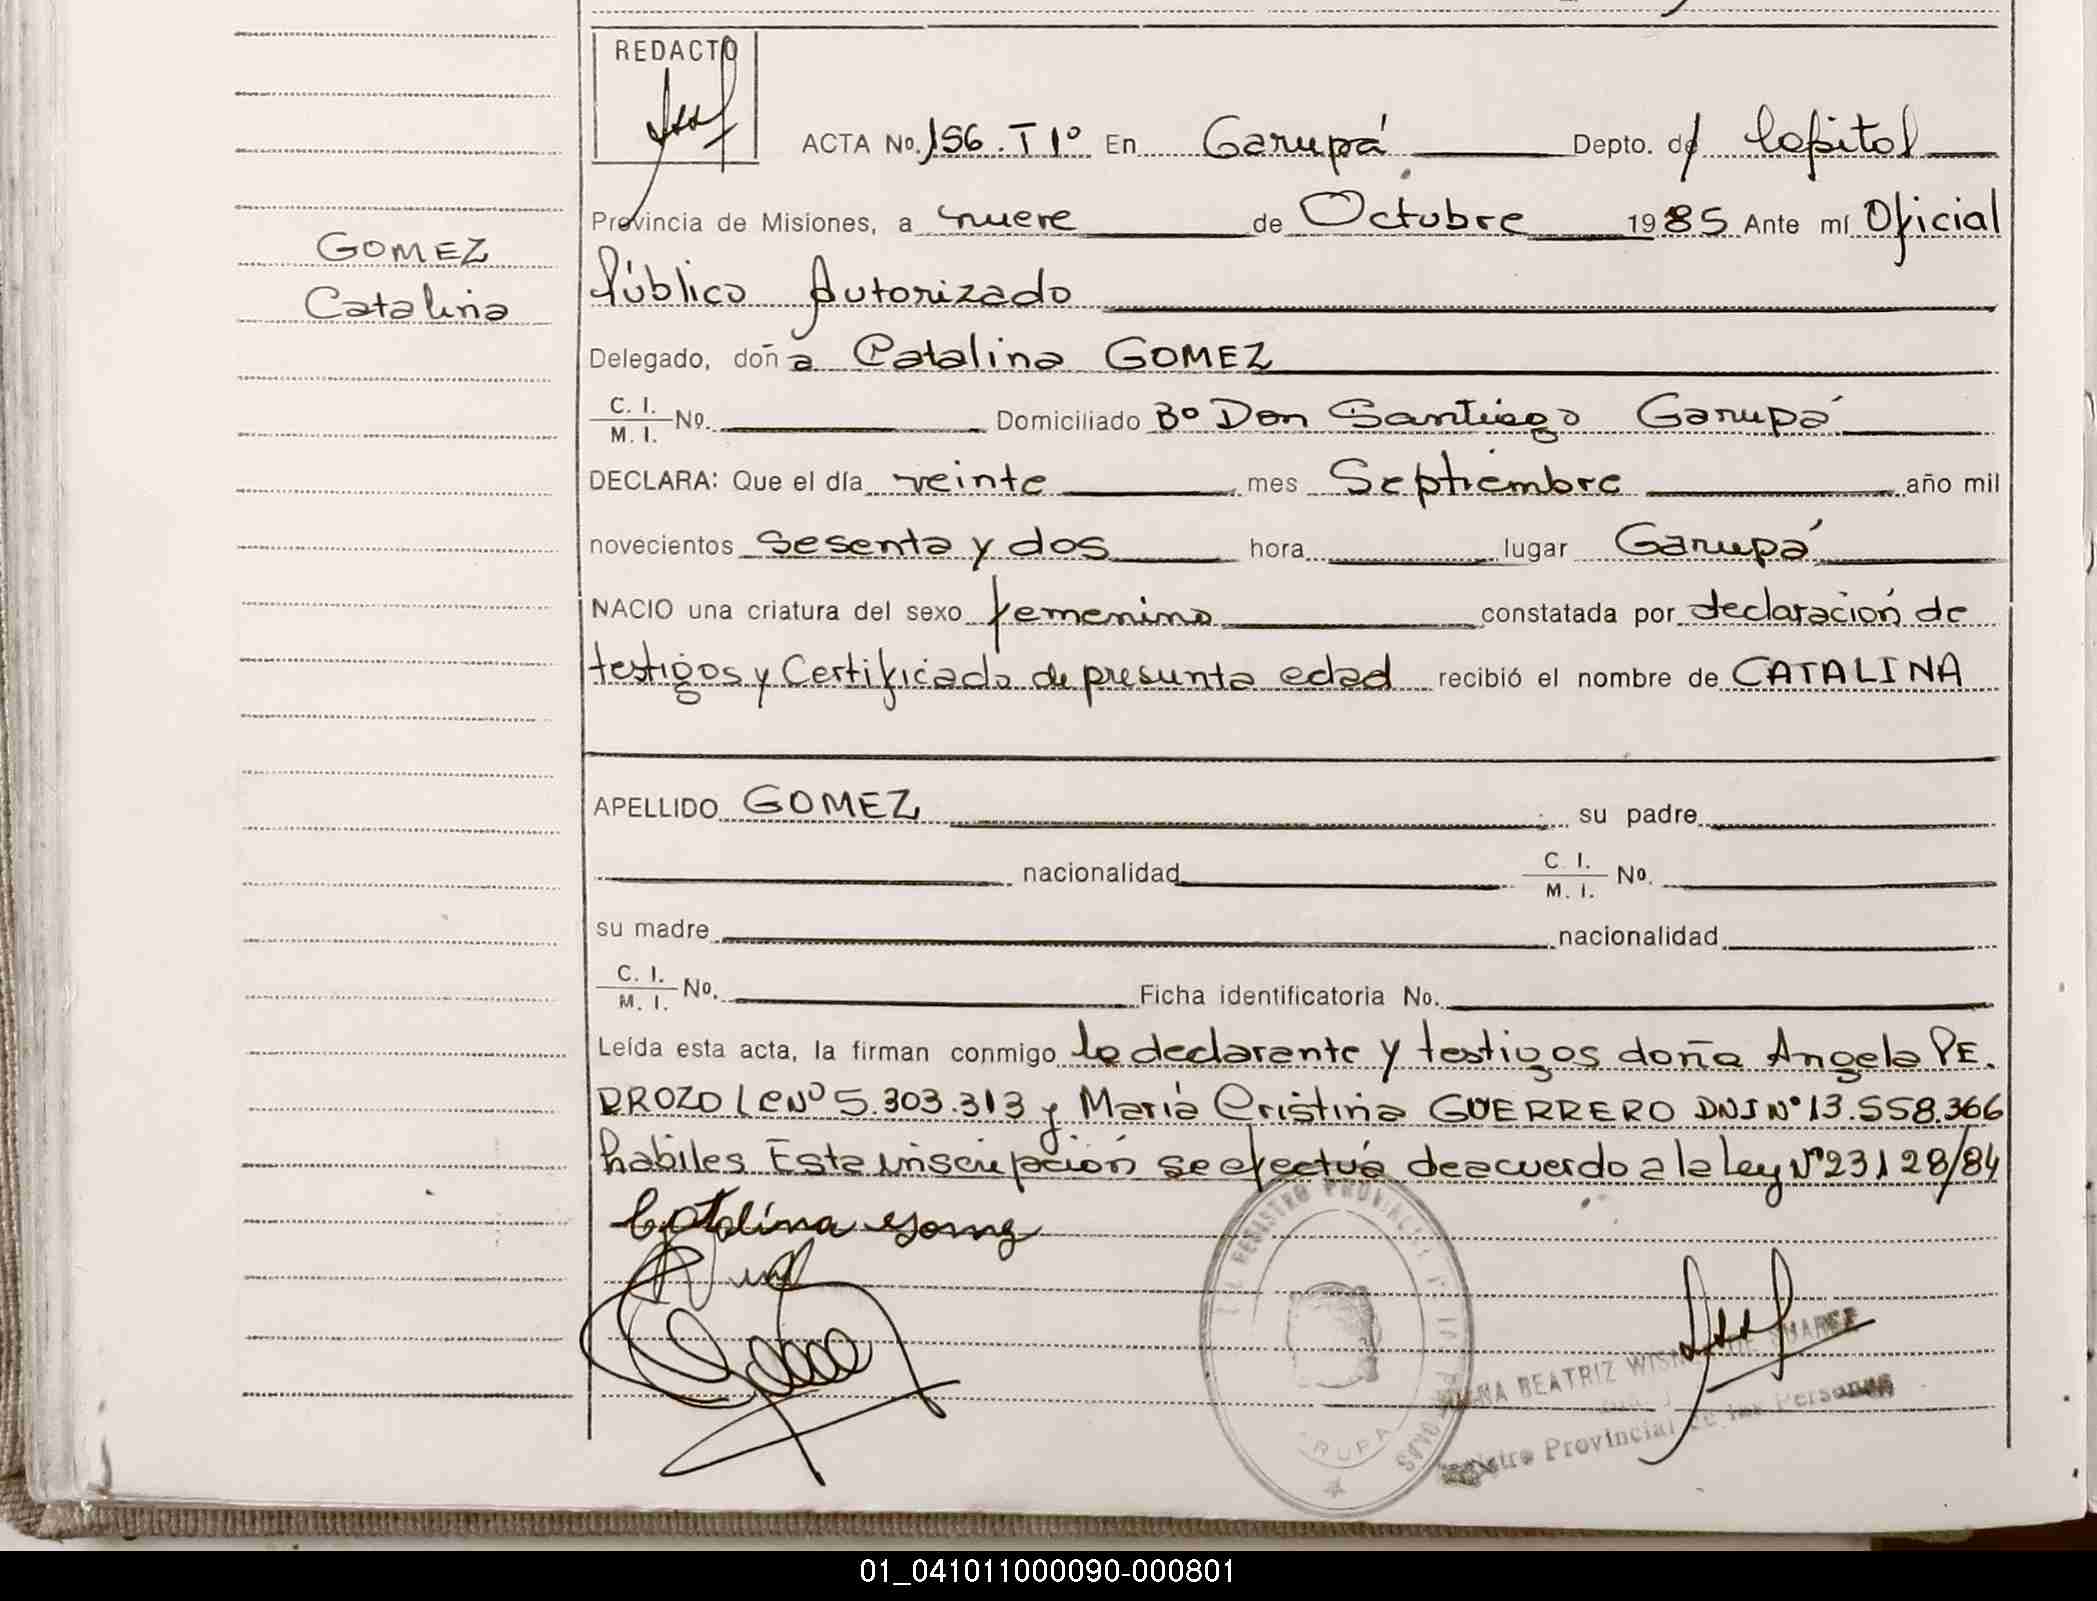 REDACTO
ACTA No. 156. T 1º En Garupá Depto. d/ Capital
Provincia de Misiones, a nueve de Octubre 1985 Ante mí Oficial
GOMEZ
Público Autorizado
Catalina
Delegado, doña Catalina GOMEZ
C. I. M. I. No. Domiciliado Bº Don Santiago Garupá
DECLARA: Que el día veinte mes Septiembre año mil
novecientos sesenta y dos hora lugar Garupá
NACIO una criatura del sexo femenino constatada por declaración de
testigos y Certificado de presunta edad recibió el nombre de CATALINA
APELLIDO GOMEZ su padre
nacionalidad C. I. M. I. No.
su madre nacionalidad
C. I. M. I. No. Ficha identificatoria No.
Leída esta acta, la firman conmigo la declarante y testigos doña Angela PE.
DROZO LC Nº 5.303.313 y María Cristina GUERRERO DNI Nº 13.558.366
habiles Esta inscripción se efectúa deacuerdo a la Ley Nº 23128/84
Catalina Gomez
REGISTRO PROVINCIAL DE LAS PERSONAS
BEATRIZ DE
Registro Provincial de las Personas
01_041011000090-000801